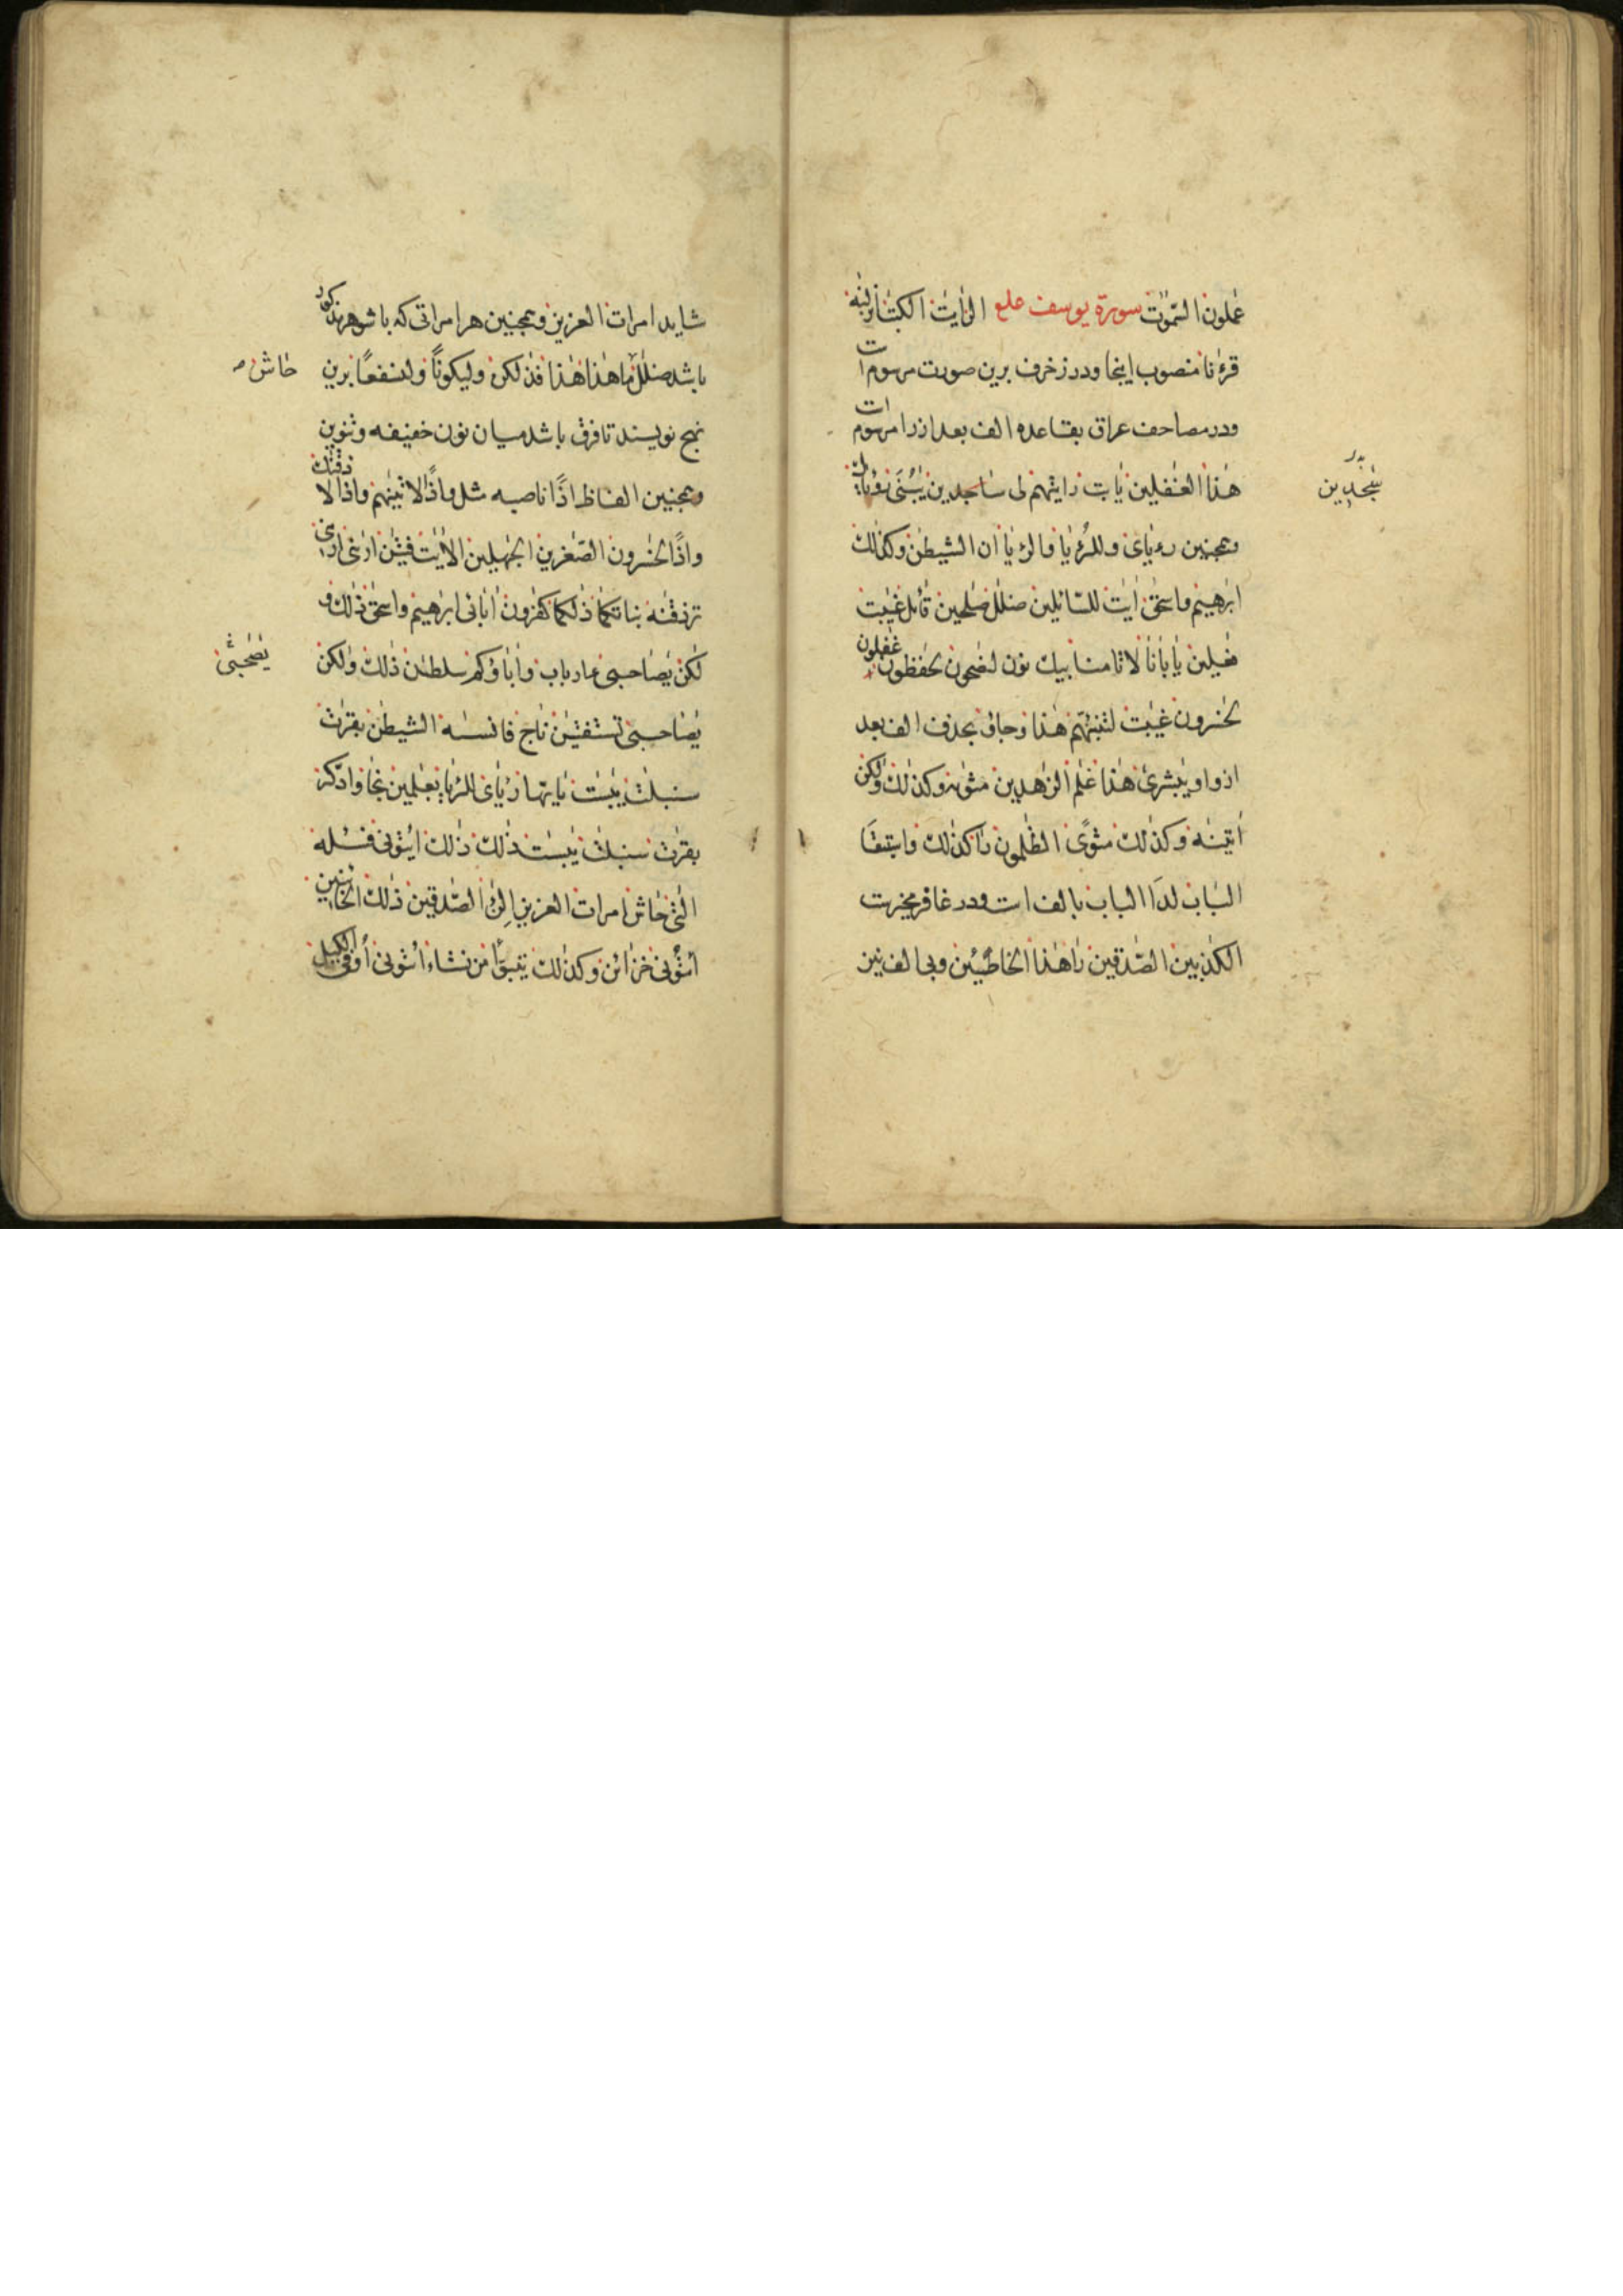 عملون السّموت سورة يوسف علع الر ايت الكتب انزلنه
قرءنا منصوب اينجا ودر زخرف برين صورت مرسوم است
ودر مصاحف عراق بقاعده الف بعد از را مرسوم است
هذا الغفلين يابت رايتهم لى ساجدين يبنى رؤياك
سجدين
وهمچنين رءياى وللرءيا والرءيا ان الشيطن وكذلك
ابرهيم واسحق ايت للسائلين ضلل صلحين قائل غيبت
فعلين يابانا لا تامنا بيك نون لنصحون لحفظون غفلون
لخسرون غيبت لتنبئنهم هذا وجاؤ بحذف الف بعد
از واو يبشرى هذا غلم الزهدين مثوىه وكذلك ولكن
اتينه وكذلك مثوى الظلمون را كذلك واستبقا
الباب لدا الباب بالف است ودر غافر بخرت
الكذبين الصدقين را هذا الخاطئين وبى الف نيز
شايد امرات العزيز وهمچنين هر امراتى كه با شوهر مذكور
باشد ضلل ما هذا هذا فذلكن وليكونا ولنسفعا برين
حاش
نهج نويسند تا فرق باشد ميان نون خفيفه وتنوين
وهمچنين الفاظ اذا ناصبه مثل واذا لاتينهم واذا لاذقنك
واذا لخسرون الصغرين الجهلين الايت فتين ارىنى ارىنى
ترزقنه بناتكما ذلكما كفرون اباءى ابرهيم واسحق ذلك و
لكن يصاحبى ءارباب واباؤكم سلطن ذلك ولكن
يصحبى
يصاحبى تستفتين ناج فانسه الشيطن بقرت
سنبلت يبست يايها رءياى للرءيا بعلمين نجا وادكر
بقرت سنبلت يبست ذلك ذلك ايتونى فسله
التى حاش امرات العزيز الئن الصدقين ذلك الخاينين
ائتونى خزائن وكذلك يتبوا من نشاء ائتونى اوفى الكيل